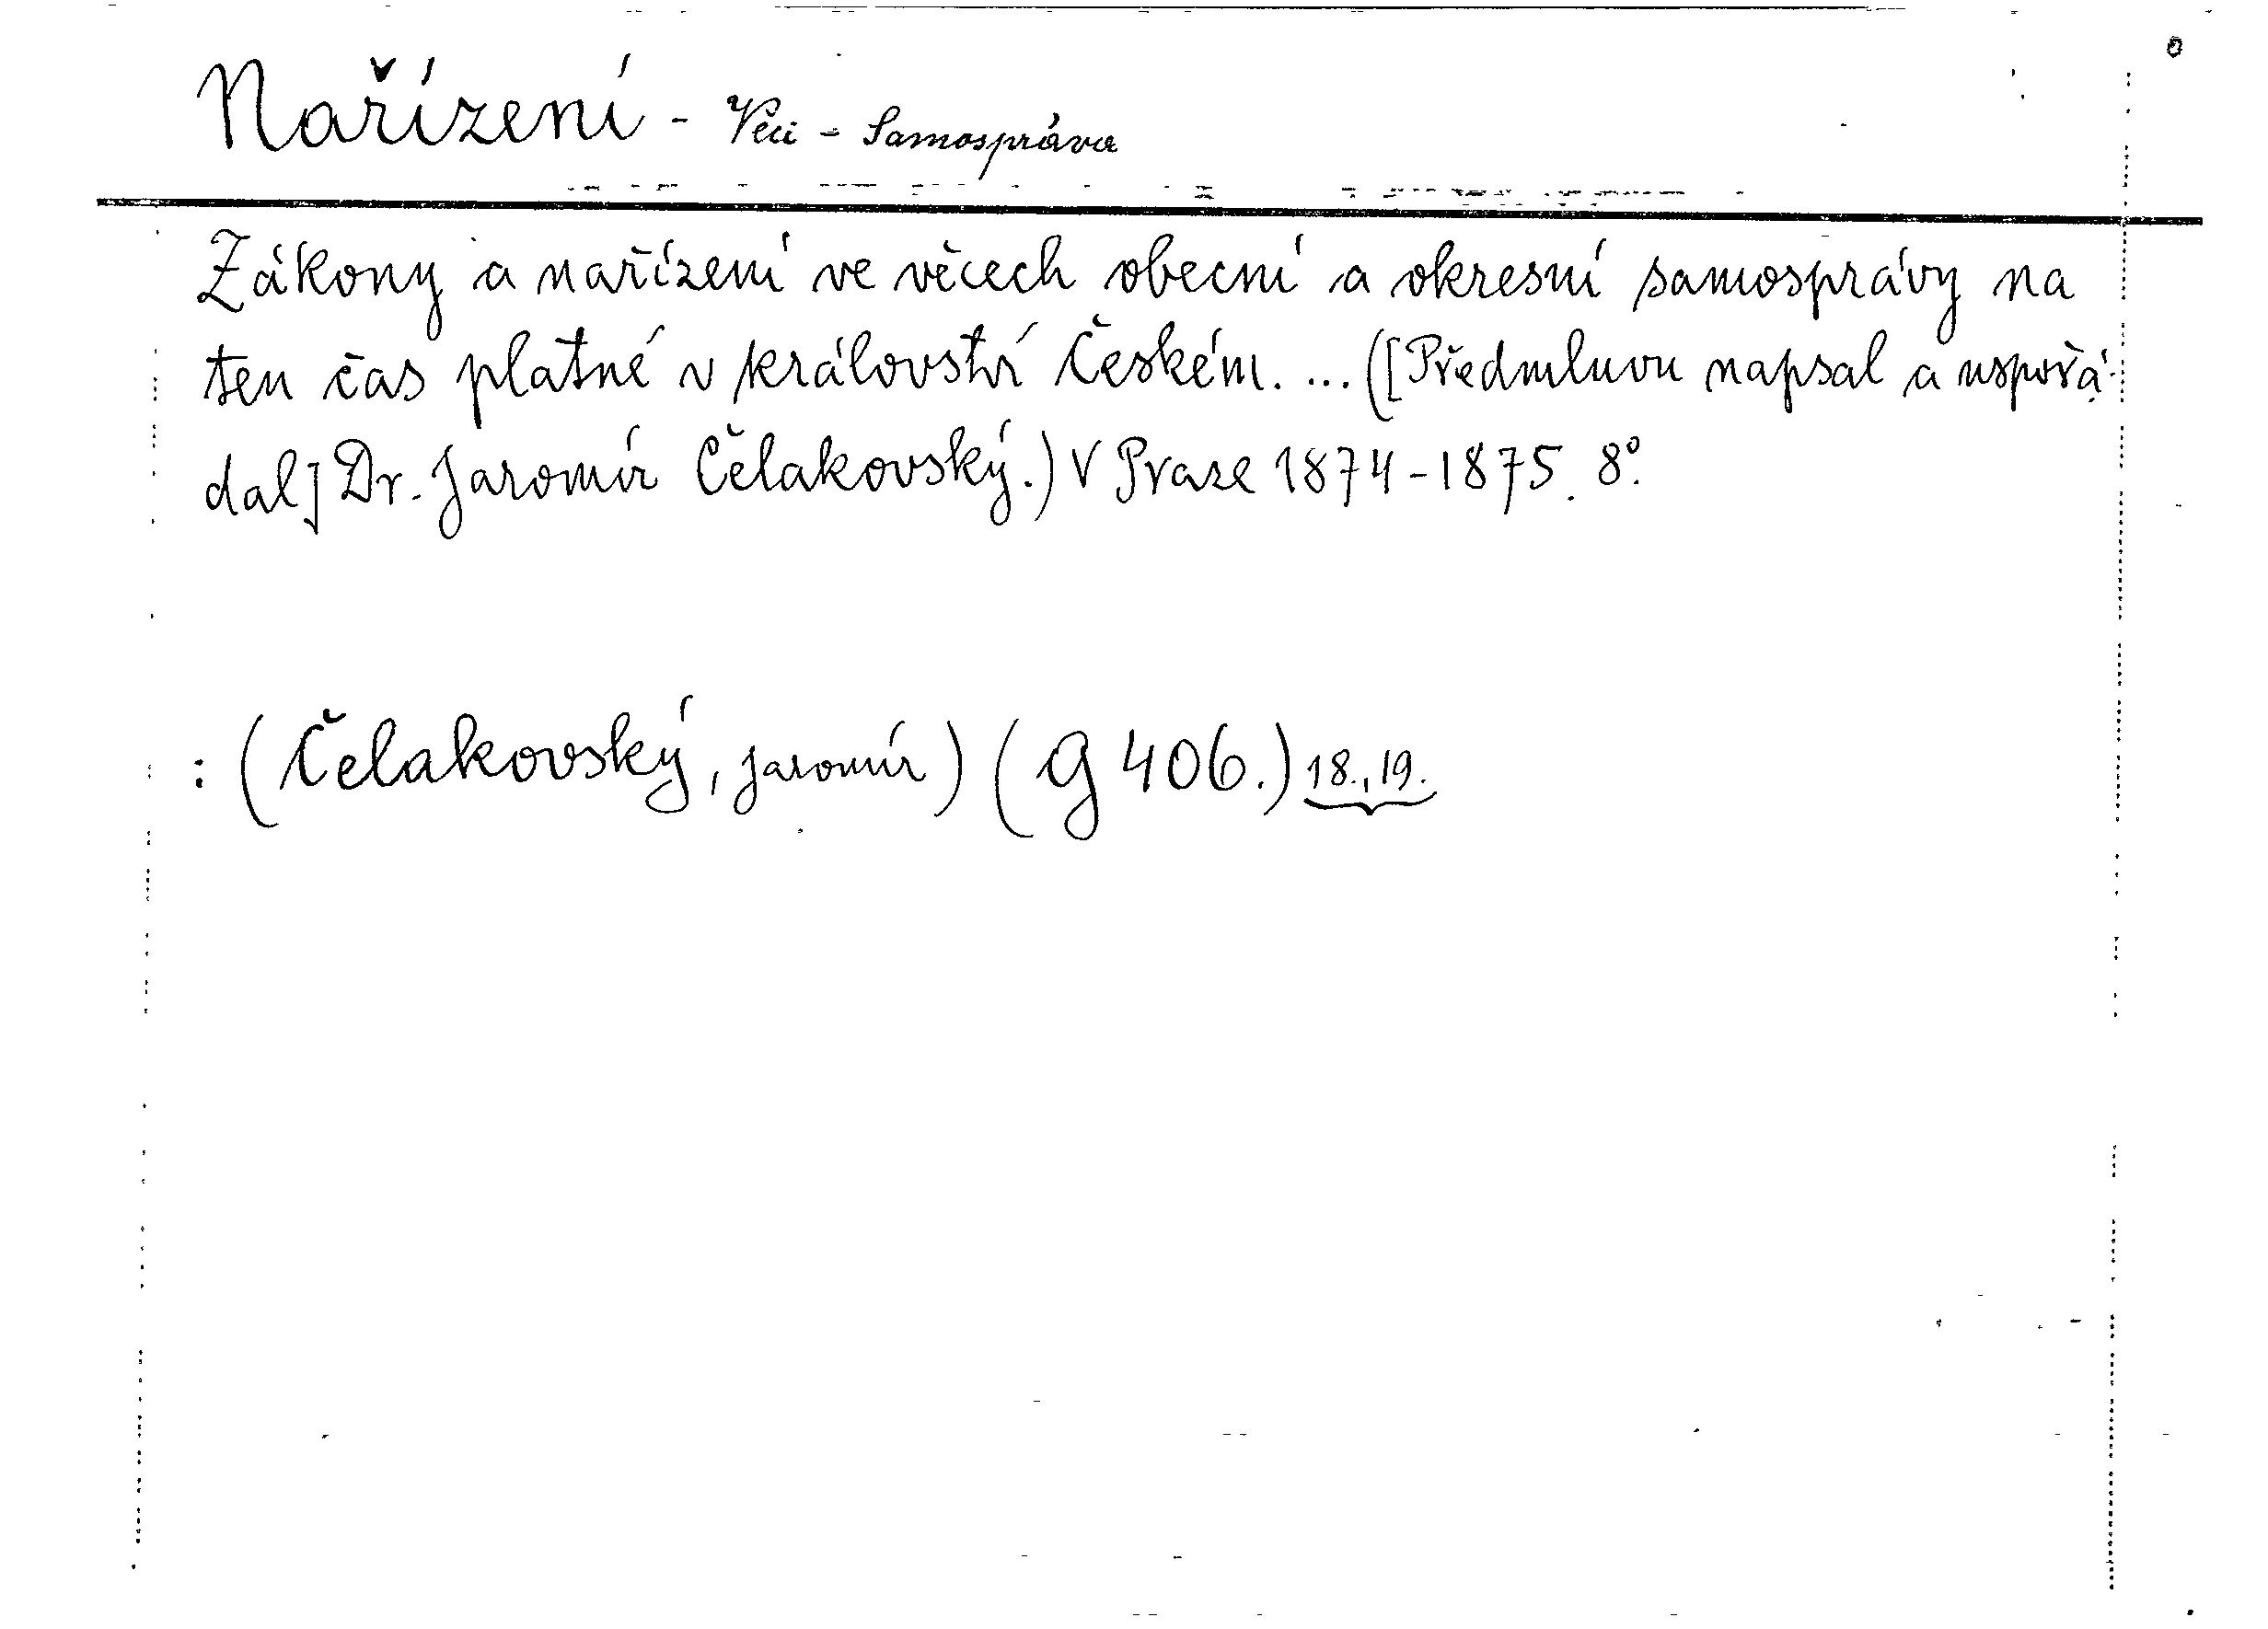 Nařízení - Věci - Samospráva
Zákony a nařízení ve věcech obecní a okresní samosprávy na
ten čas platné v království Českém. ... ([Předmluvu napsal a uspořá-
dal] Dr. Jaromír Čelakovský.) V Praze 1874-1875. 8°.
: (Čelakovský, Jaromír) (G 406.) 18., 19.